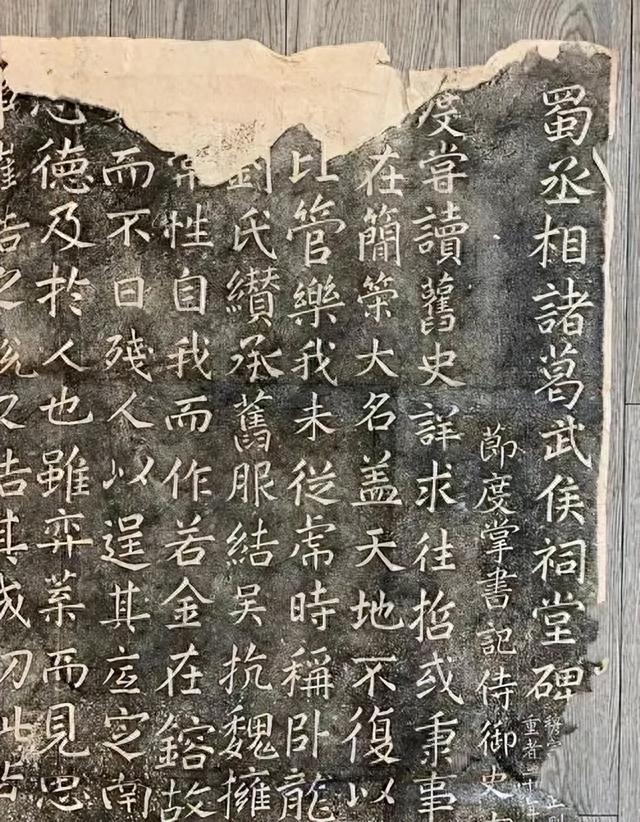 蜀丞相諸葛武侯祠堂碑
節度掌書記侍御史
度嘗讀舊史詳求往哲或秉事
在簡策大名盖天地不復以
比管樂我未從虗時稱卧龍
劉氏纉承舊服結吴抗魏擁
常性自我而作若金在鎔故
而不曰殘人以逞其底定南
心德及於人也雖弈葉而見思
之説又告其成功此皆